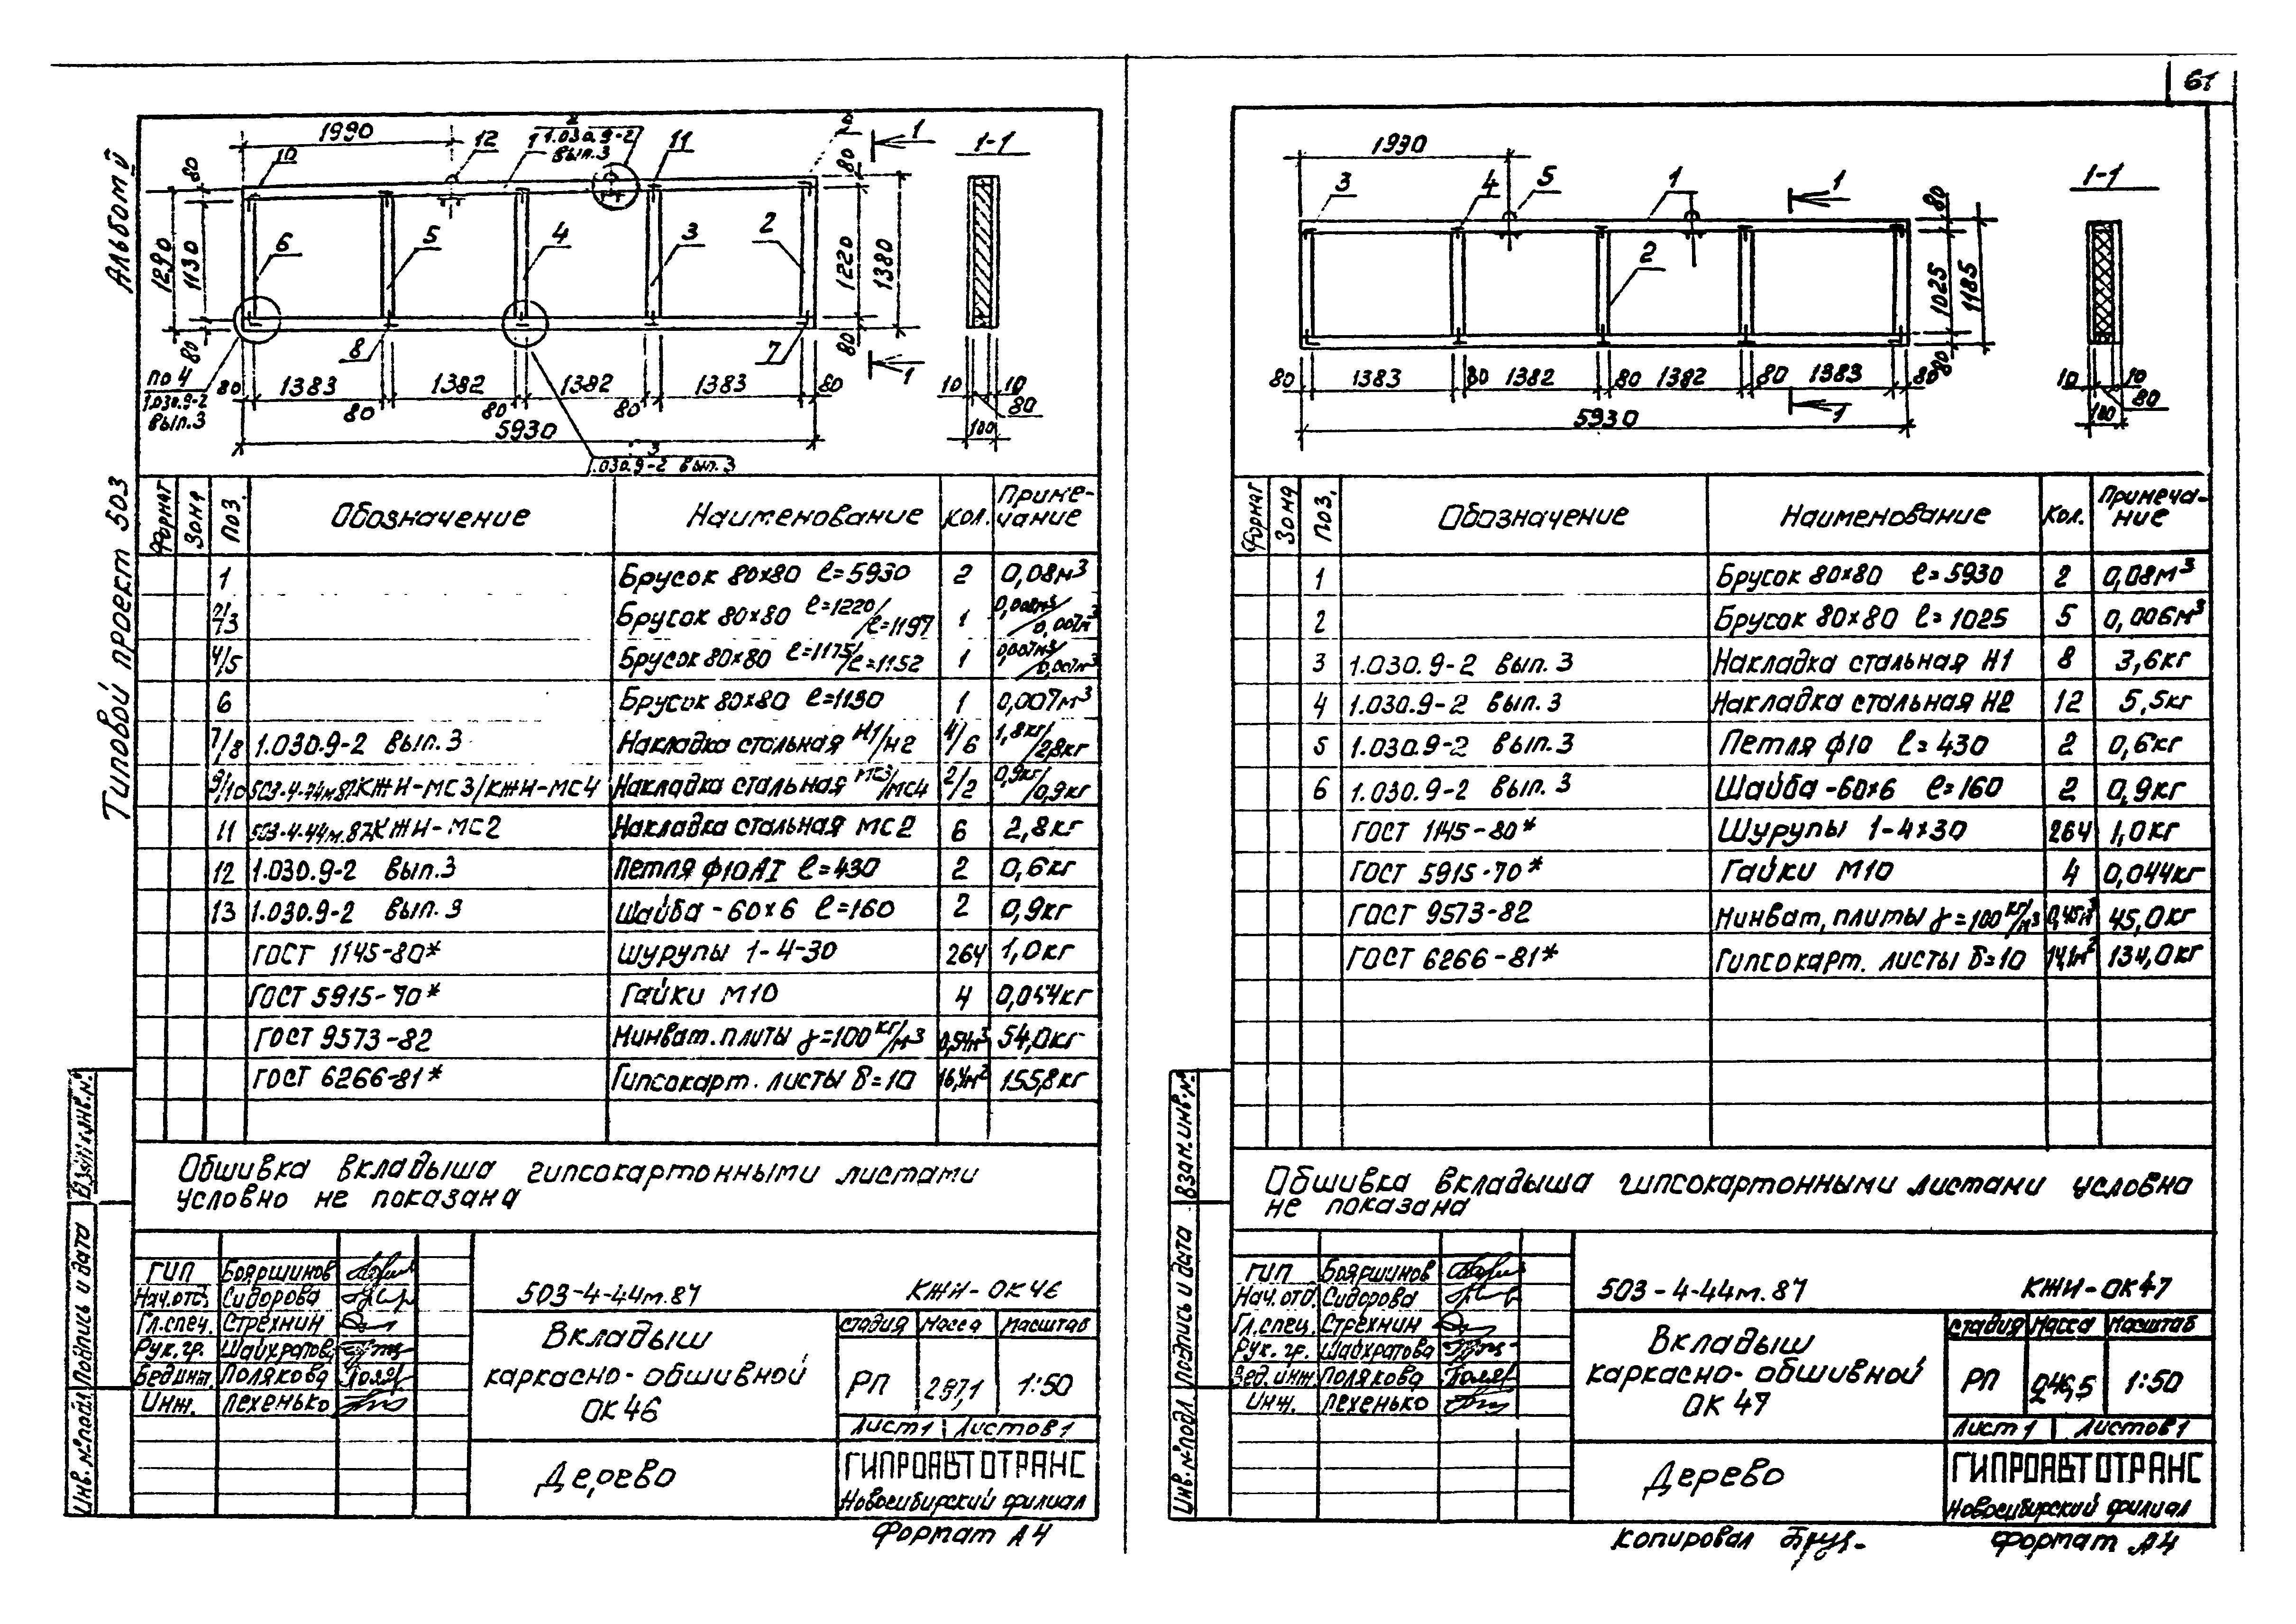 61
Альбом V
Типовой проект 503
1990
12
1
1.030.9-2
вып.3
11
1
1-1
10
80
80
1290
1130
6
5
4
3
2
1220
1380
8
7
80
80
по 4
1.030.9-2
вып.3
80
1383
80
1382
80
1382
80
1383
80
1
10
10
80
100
5930
3
1.030.9-2 вып.3
Формат
Зона
Поз.
Обозначение
Наименование
Кол.
Приме-
чание
1 Брусок 80х80 ℓ=5930 2 0,08м³
2/3 Брусок 80х80 ℓ=1220/ℓ=1197 1 0,008м³/0,007м³
4/5 Брусок 80х80 ℓ=1175/ℓ=1152 1 0,007м³/0,007м³
6 Брусок 80х80 ℓ=1130 1 0,007м³
7/8 1.030.9-2 вып.3 Накладка стальная Н1/Н2 4/6 1,8кг/2,8кг
9/10 503-4-44м.87КЖИ-МС3/КЖИ-МС4 Накладка стальная МС3/МС4 2/2 0,9кг/0,9кг
11 503-4-44м.87КЖИ-МС2 Накладка стальная МС2 6 2,8кг
12 1.030.9-2 вып.3 Петля ф10АI ℓ=430 2 0,6кг
13 1.030.9-2 вып.3 Шайба -60х6 ℓ=160 2 0,9кг
ГОСТ 1145-80* Шурупы 1-4-30 264 1,0кг
ГОСТ 5915-70* Гайки М10 4 0,044кг
ГОСТ 9573-82 Минват.плиты γ=100кг/м3 0,54м³ 54,0кг
ГОСТ 6266-81* Гипсокарт. листы δ=10 16,4м² 155,8кг
Обшивка вкладыша гипсокартонными листами
условно не показана
Взам.инв.№
Подпись и дата
Инв.№подл.
ГИП Бояршинов
Нач.отд. Сидорова
Гл.спец. Стрехнин
Рук.гр. Шайхратова
Вед.инж. Полякова
Инж. Лехенько
503-4-44м.87 КЖИ-ОК46
Вкладыш
каркасно-обшивной
ОК46
Стадия Масса Масштаб
РП 257,1 1:50
Лист1 Листов1
Дерево
ГИПРОАВТОТРАНС
Новосибирский филиал
Формат А4
1930
3
4
5
1
1
1-1
2
80
1025
1185
80
80
1383
80
1382
80
1382
80
1383
80
1
5930
10
10
80
100
Формат
Зона
Поз.
Обозначение
Наименование
Кол.
Примеча-
ние
1 Брусок 80х80 ℓ=5930 2 0,08м³
2 Брусок 80х80 ℓ=1025 5 0,006м³
3 1.030.9-2 вып.3 Накладка стальная Н1 8 3,6кг
4 1.030.9-2 вып.3 Накладка стальная Н2 12 5,5кг
5 1.030.9-2 вып.3 Петля ф10 ℓ=430 2 0,6кг
6 1.030.9-2 вып.3 Шайба -60х6 ℓ=160 2 0,9кг
ГОСТ 1145-80* Шурупы 1-4х30 264 1,0кг
ГОСТ 5915-70* Гайки М10 4 0,044кг
ГОСТ 9573-82 Минват,плиты γ=100кг/м3 0,45м³ 45,0кг
ГОСТ 6266-81* Гипсокарт. листы δ=10 14,1м² 134,0кг
Обшивка вкладыша гипсокартонными листами условно
не показана
Взам.инв.№
Подпись и дата
Инв.№подл.
ГИП Бояршинов
Нач.отд. Сидорова
Гл.спец. Стрехнин
Рук.гр. Шайхратова
Вед.инж. Полякова
Инж. Лехенько
503-4-44м.87 КЖИ-ОК47
Вкладыш
каркасно-обшивной
ОК47
Стадия Масса Масштаб
РП 246,5 1:50
Лист1 Листов1
Дерево
ГИПРОАВТОТРАНС
Новосибирский филиал
Копировал
Формат А4